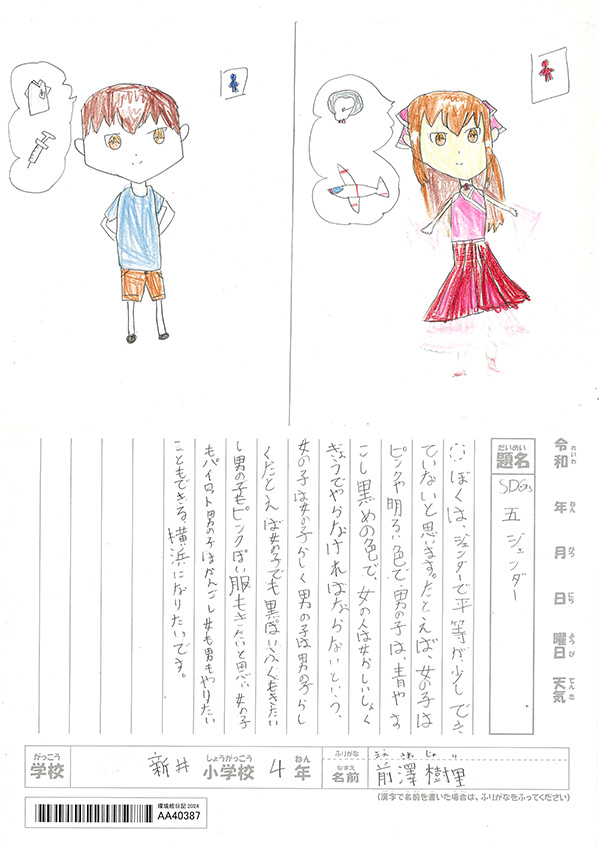 令和 年 月 日 曜日 天気
れいわ ねん がつ にち ようび てんき
だいめい
題名
SDGs 五 ジェンダー
ぼくは、ジェンダーで平等が少しでき
ていないと思います。たとえば、女の子は
ピンクや明るい色で、男の子は、青やす
こし黒めの色で、女の人は女らしいしょく
ぎょうでやらなければならないという、
女の子は女の子らしく男の子は男の子らし
くたとえば女の子でも黒っぽいふくもきたい
し男の子もピンクぽい服もきたいと思い女の子
もパイロット男の子はかんごし女も男もやりたい
こともできる横浜になりたいです。
がっこう
学校
新井 小学校 4年
しょうがっこう ねん
ふりがな
なまえ
名前
前澤 樹里
(漢字で名前を書いた場合は、ふりがなをふってください)
環境絵日記 2024
AA40387